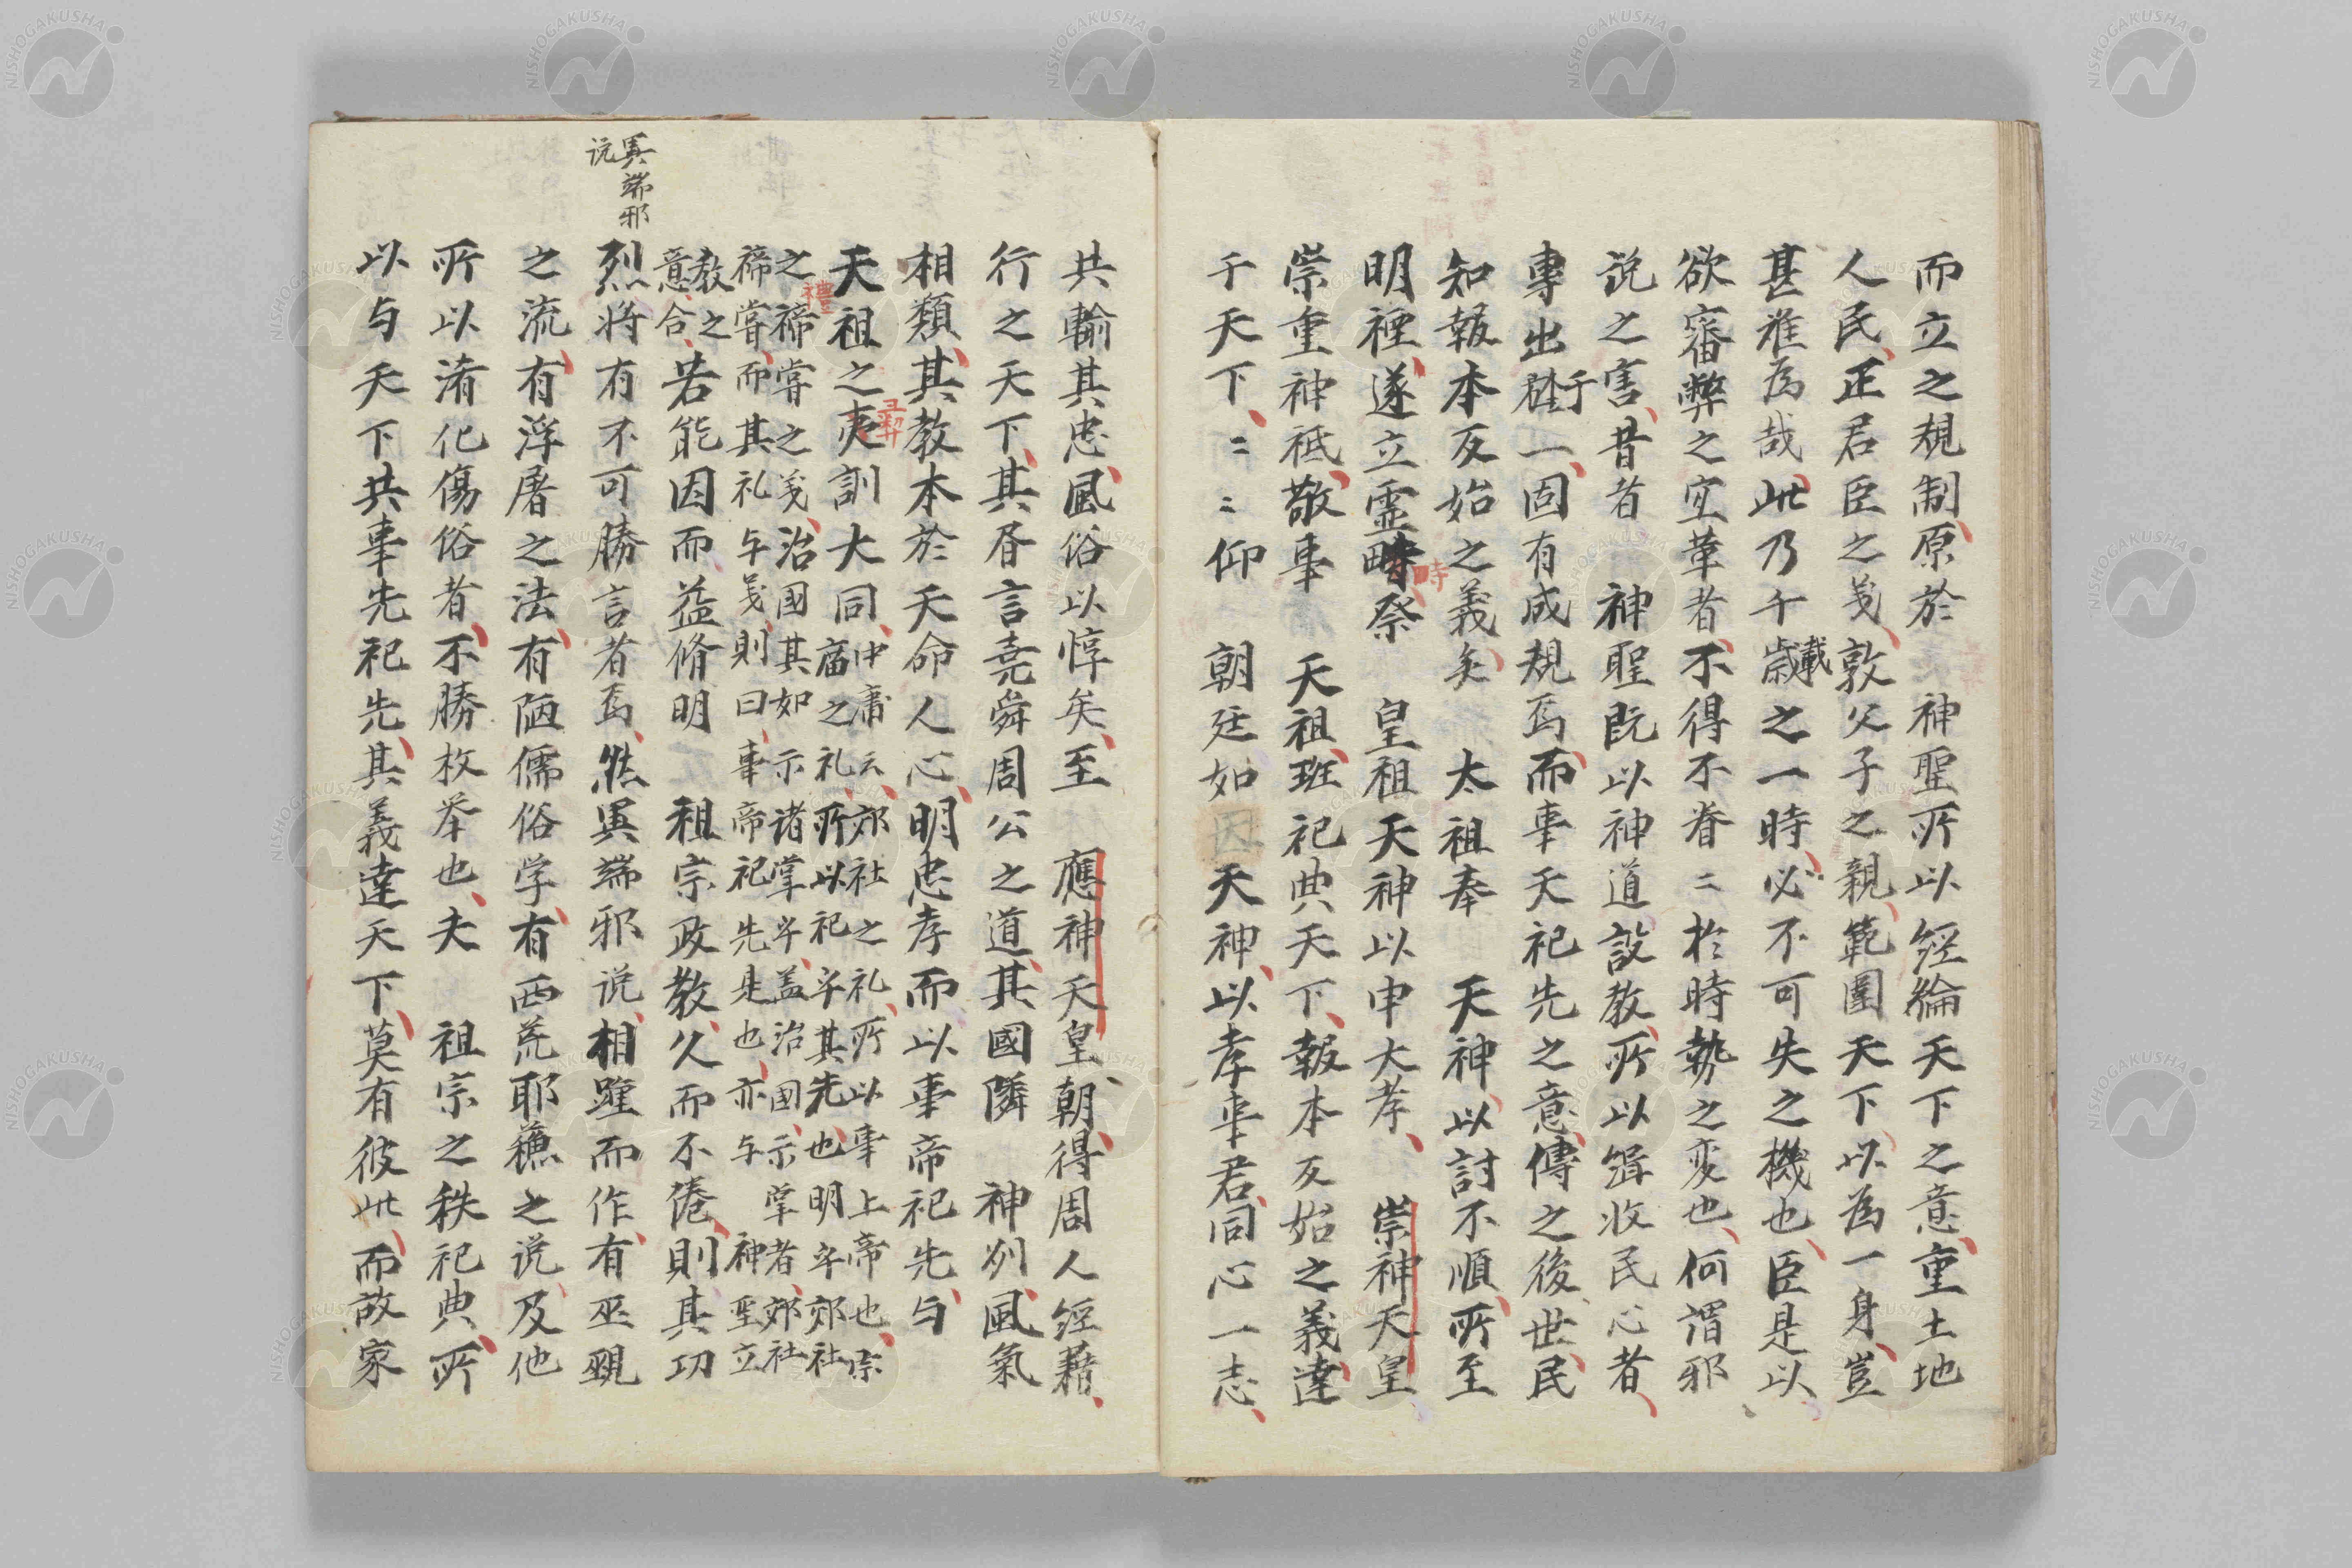 而立之規制原於　神聖所以經綸天下之意重土地
人民正君臣之義敦父子之親範圍天下以為一身豈
甚难為哉此乃千歳載之一時必不可失之機也臣是以
欲審弊之宜革者不得不眷〻於時勢之変也何謂邪
説之害昔者　神聖既以神道設教所以緝收民心者
專出於一固有成規焉而事天祀先之意傳之後世民
知報本反始之義矣　太祖奉　天神以討不順所至
明禋遂立霊畤祭　皇祖天神以申大孝　崇神天皇
崇重神祗敬事　天祖班祀典天下報本反始之義達
于天下〻〻仰　朝廷如　天神以孝事君同心一志
共輸其忠風俗以惇矣至　應神天皇朝得周人經籍
行之天下其書言堯舜周公之道其國隣　神州風氣
相類其教本於天命人心明忠孝而以事帝祀先与
天祖之彝訓大同中庸云郊社之礼所以事上帝也宗
庙之礼所以祀乎其先也明乎郊社
之禘嘗之義治國其如示諸掌乎盖治國示掌者郊社
禘嘗而其礼与義則曰事帝祀先是也亦与　神聖立
教之
意合若能因而益脩明　祖宗政教久而不倦則其功
烈将有不可勝言者焉然異端邪说相踵而作有巫覡
之流有浮屠之法有陋儒俗学有西荒耶蘓之说及他
所以淆化傷俗者不勝枚举也夫　祖宗之秩祀典所
以与天下共事先祀先其義達天下莫有彼此而故家
異端邪
说
禮
彝
畤
NISHOGAKUSHA